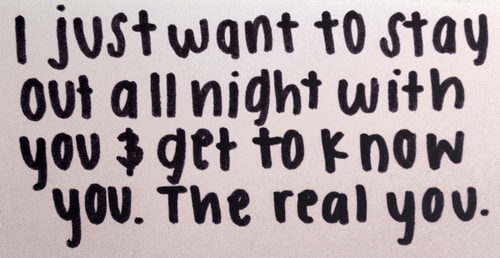 I just want to stay
out all night with
you & get to know
you. The real you.